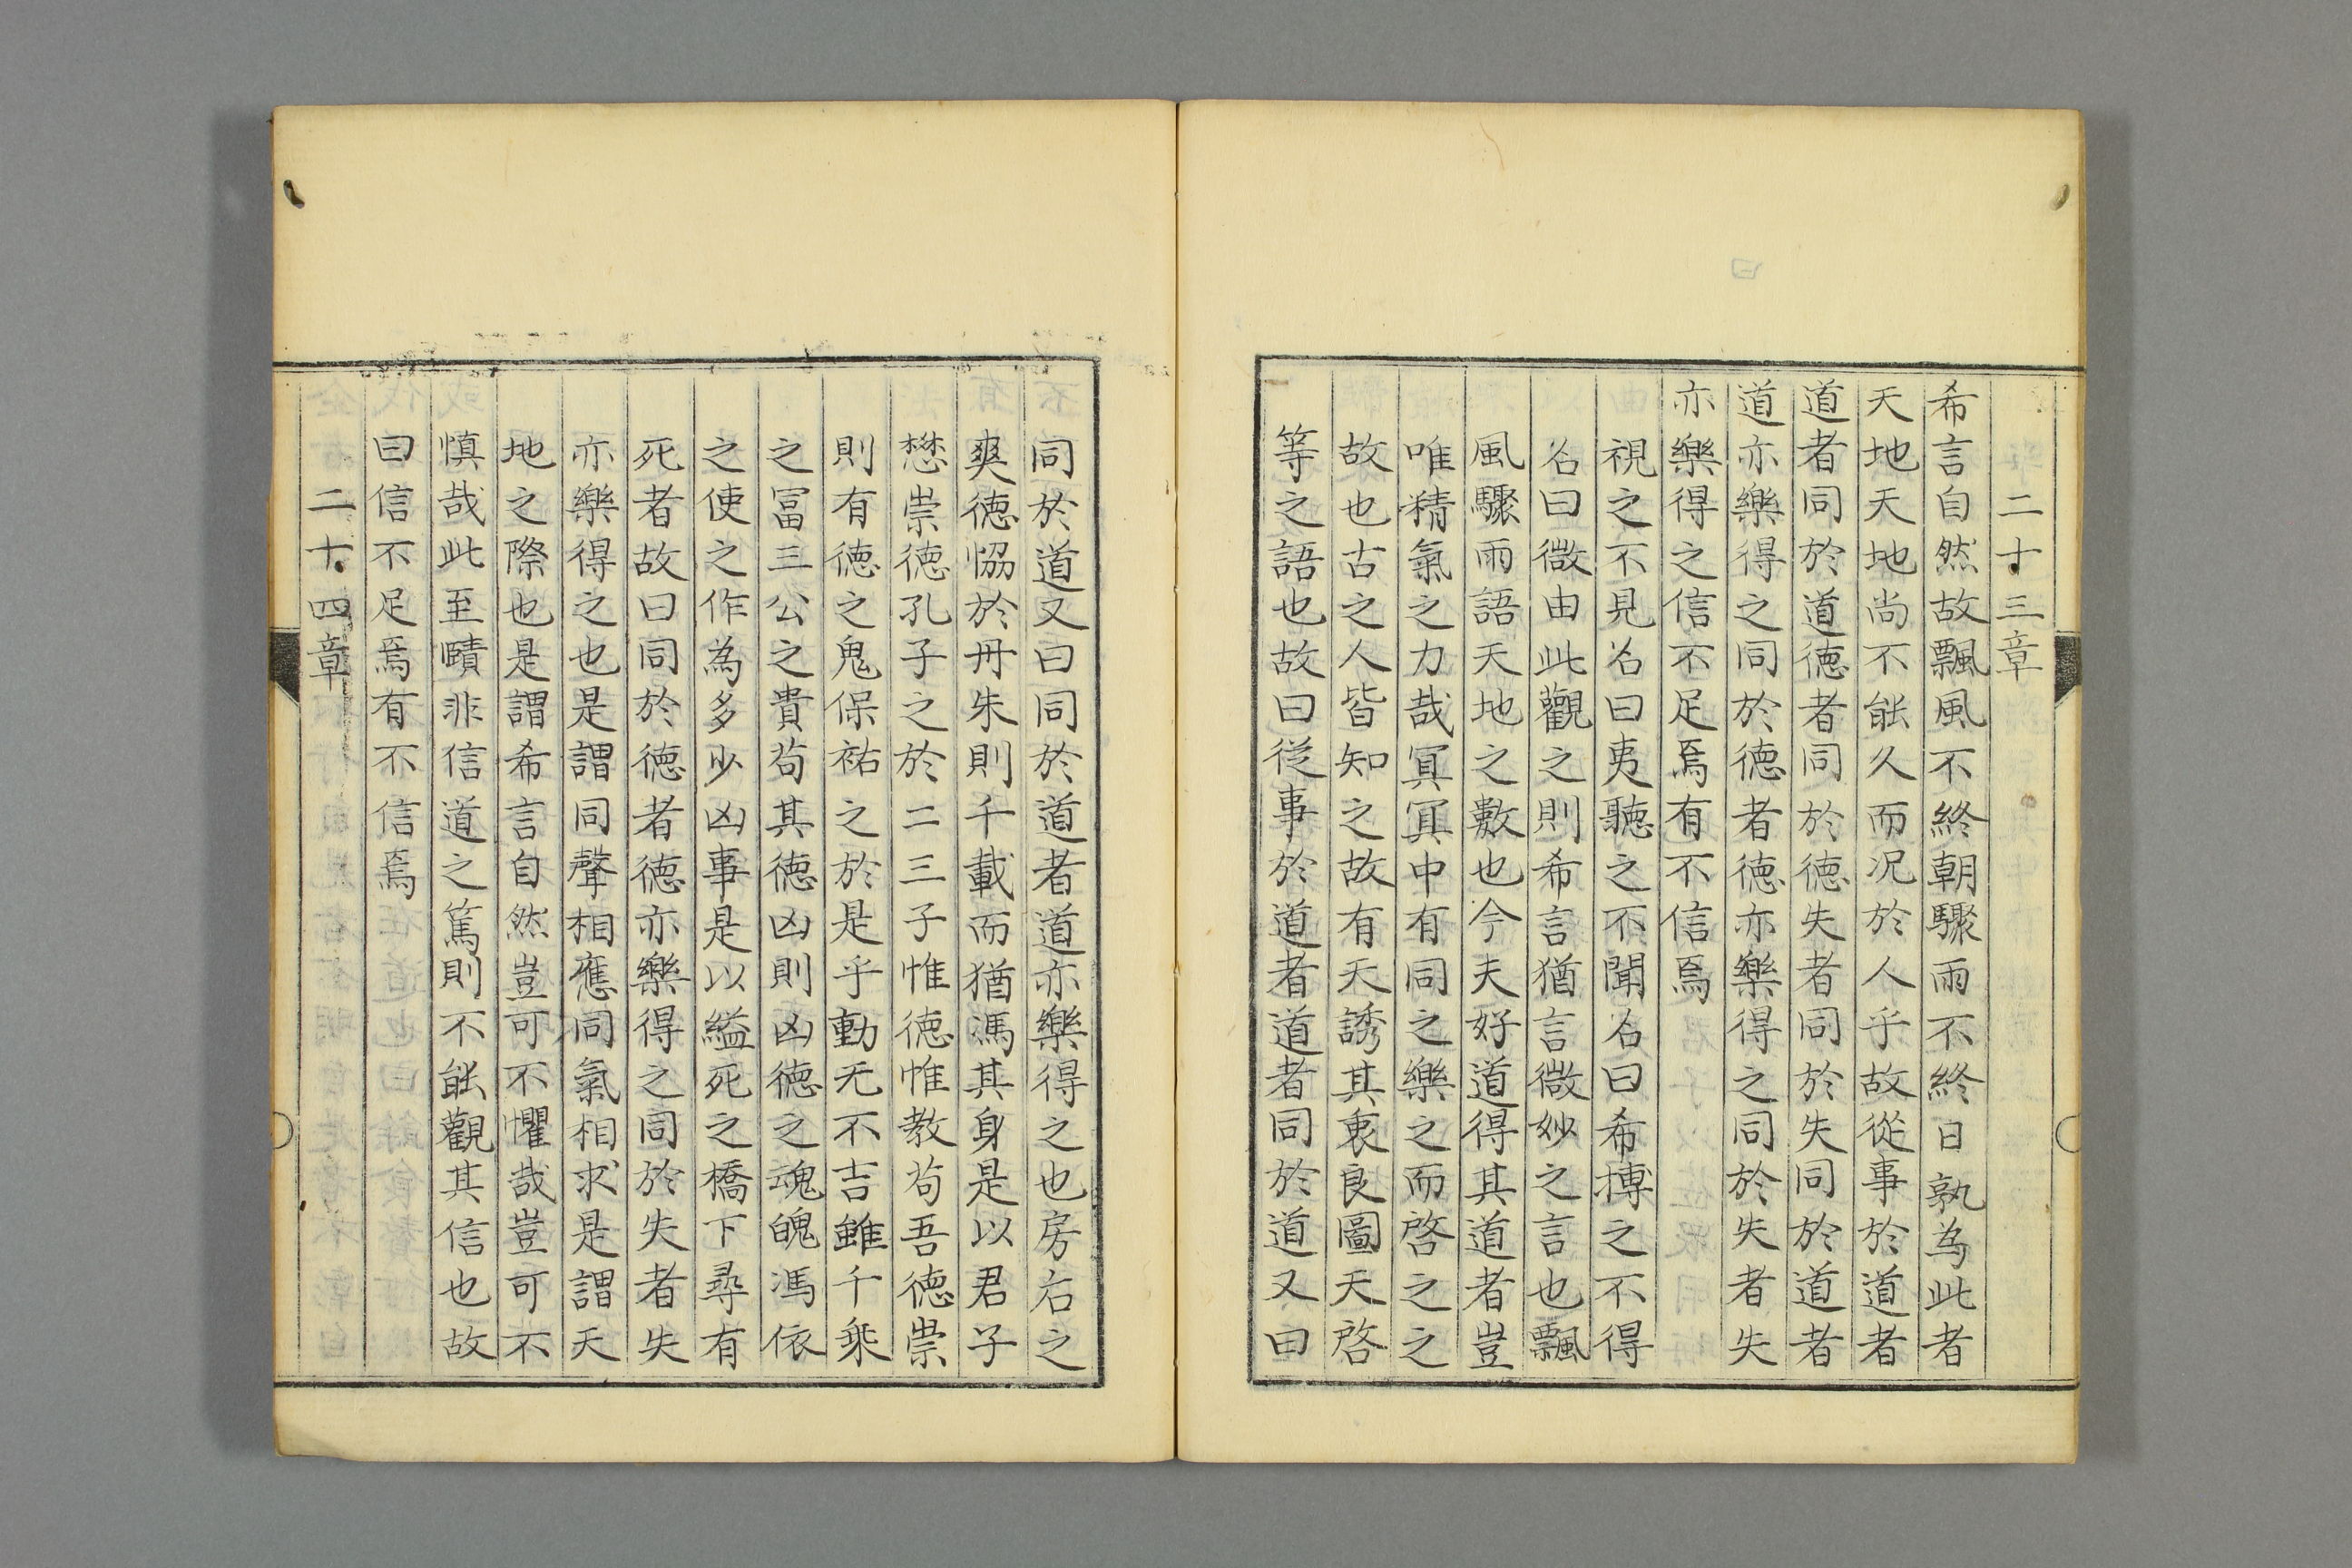 二十三章
希言自然故飄風不終朝驟雨不終日孰為此者
天地天地尚不能久而况於人乎故從事於道者
道者同於道德者同於德失者同於失同於道者
道亦樂得之同於德者德亦樂得之同於失者失
亦樂得之信不足焉有不信焉
視之不見名曰夷聽之不聞名曰希摶之不得
名曰微由此觀之則希言猶言微妙之言也飄
風驟雨語天地之數也今夫好道得其道者豈
唯精氣之力哉冥冥中有同之樂之而啓之之
故也古之人皆知之故有天誘其衷良圖天啓
等之語也故曰從事於道者道者同於道又曰
同於道又曰同於道者道亦樂得之也房后之
爽德恊於丹朱則千載而猶馮其身是以君子
懋崇德孔子之於二三子惟德惟教苟吾德崇
則有德之鬼保祐之於是乎動无不吉雖千乘
之冨三公之貴苟其德凶則凶德之魂魄馮依
之使之作為多少凶事是以縊死之橋下尋有
死者故曰同於德者德亦樂得之同於失者失
亦樂得之也是謂同聲相應同氣相求是謂天
地之際也是謂希言自然豈可不懼哉豈可不
慎哉此至賾非信道之篤則不能觀其信也故
曰信不足焉有不信焉
二十四章